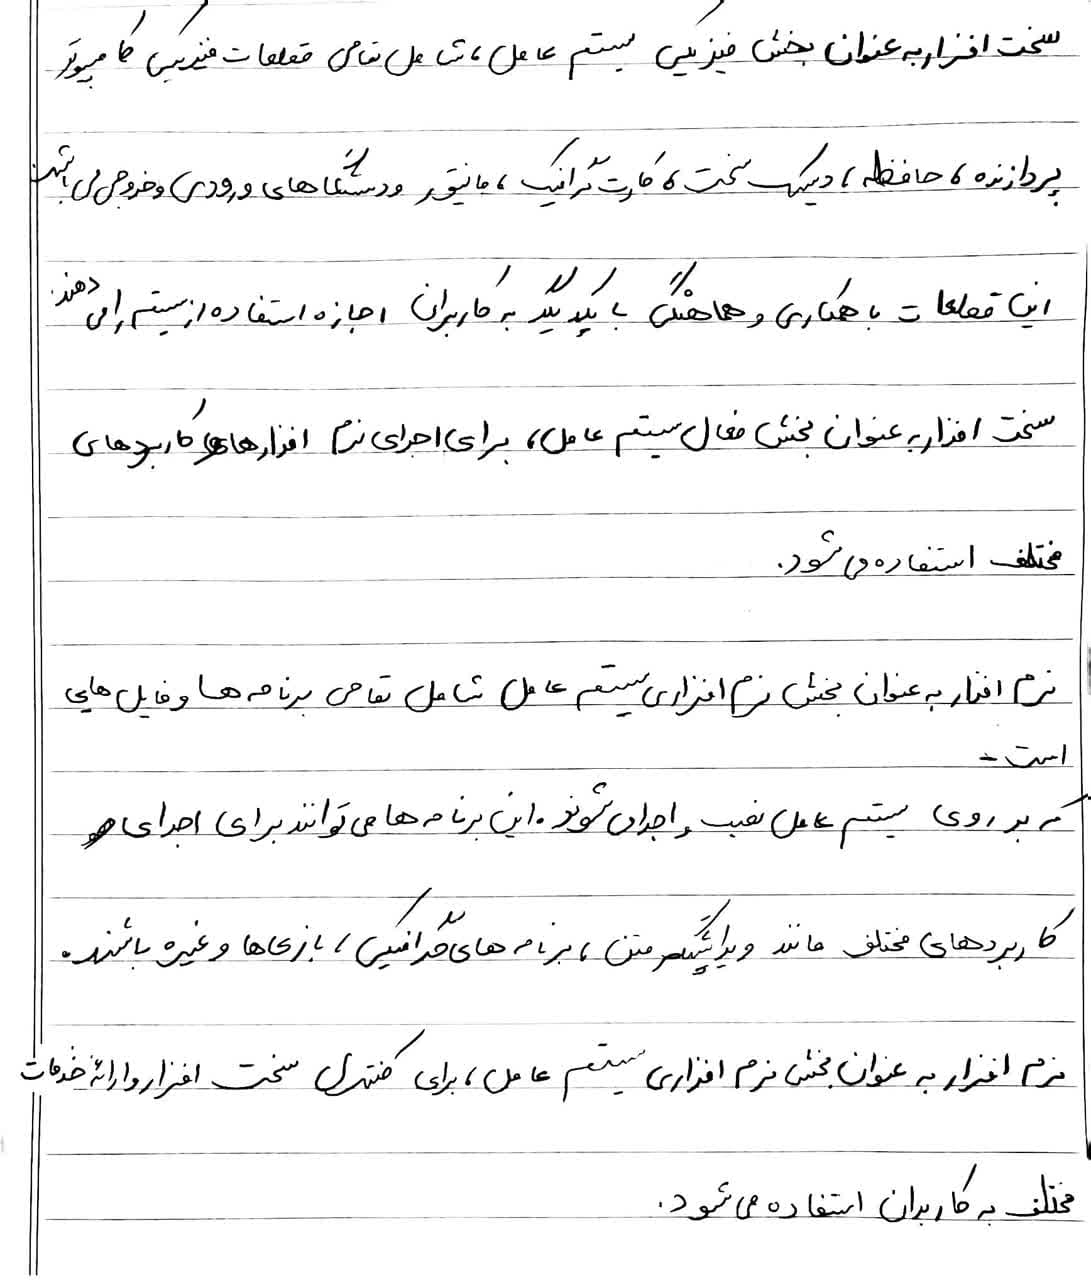 سخت افزار به عنوان بخش فیزیکی سیستم عامل، شامل تمامی قطعات فیزیکی کامپیوتر
پردازنده، حافظه، دیسک سخت، کارت گرافیک، مانیتور و دستگاههای ورودی و خروجی می باشد.
این قطعات با همکاری و هماهنگی با یکدیگر به کاربران اجازه استفاده از سیستم را می دهند.
سخت افزار به عنوان بخش فعال سیستم عامل، برای اجرای نرم افزارها و کاربردهای
مختلف استفاده می شود.
نرم افزار به عنوان بخش نرم افزاری سیستم عامل شامل تمامی برنامه ها و فایل هایی
است
که بر روی سیستم عامل نصب و اجرا می شوند. این برنامه ها می توانند برای اجرای
کاربردهای مختلف مانند ویرایشگر متن، برنامه های گرافیکی، بازی ها و غیره باشند.
نرم افزار به عنوان بخش نرم افزاری سیستم عامل، برای کنترل سخت افزار و ارائه خدمات
مختلف به کاربران استفاده می شود.